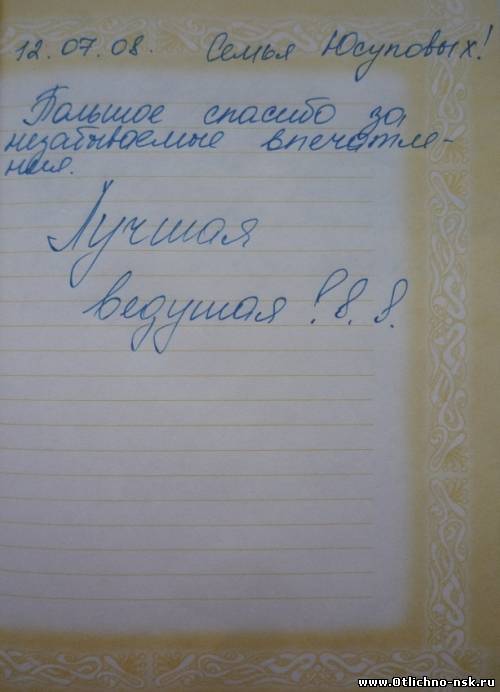 12.07.08. Семья Юсуповых!
Большое спасибо за
незабываемые впечатле-
ния.
Лучшая
ведущая !!!
www.Otlichno-nsk.ru